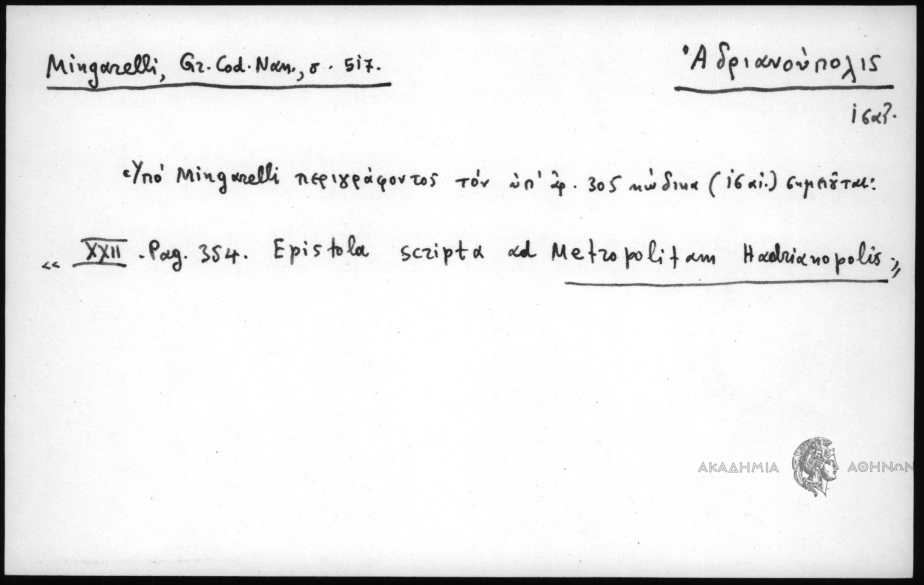 Mingarelli, Gr. Cod. Nan., σ. 517.
Ἀδριανούπολις
ις αἰ.
Ὑπό Mingarelli περιγράφοντος τόν ὑπ' ἀρ. 305 κώδικα (ις αἰ.) σημειοῦται:
« XXII. Pag. 354. Epistola scripta ad Metropolitam Hadrianopolis.»
ΑΚΑΔΗΜΙΑ ΑΘΗΝΩΝ